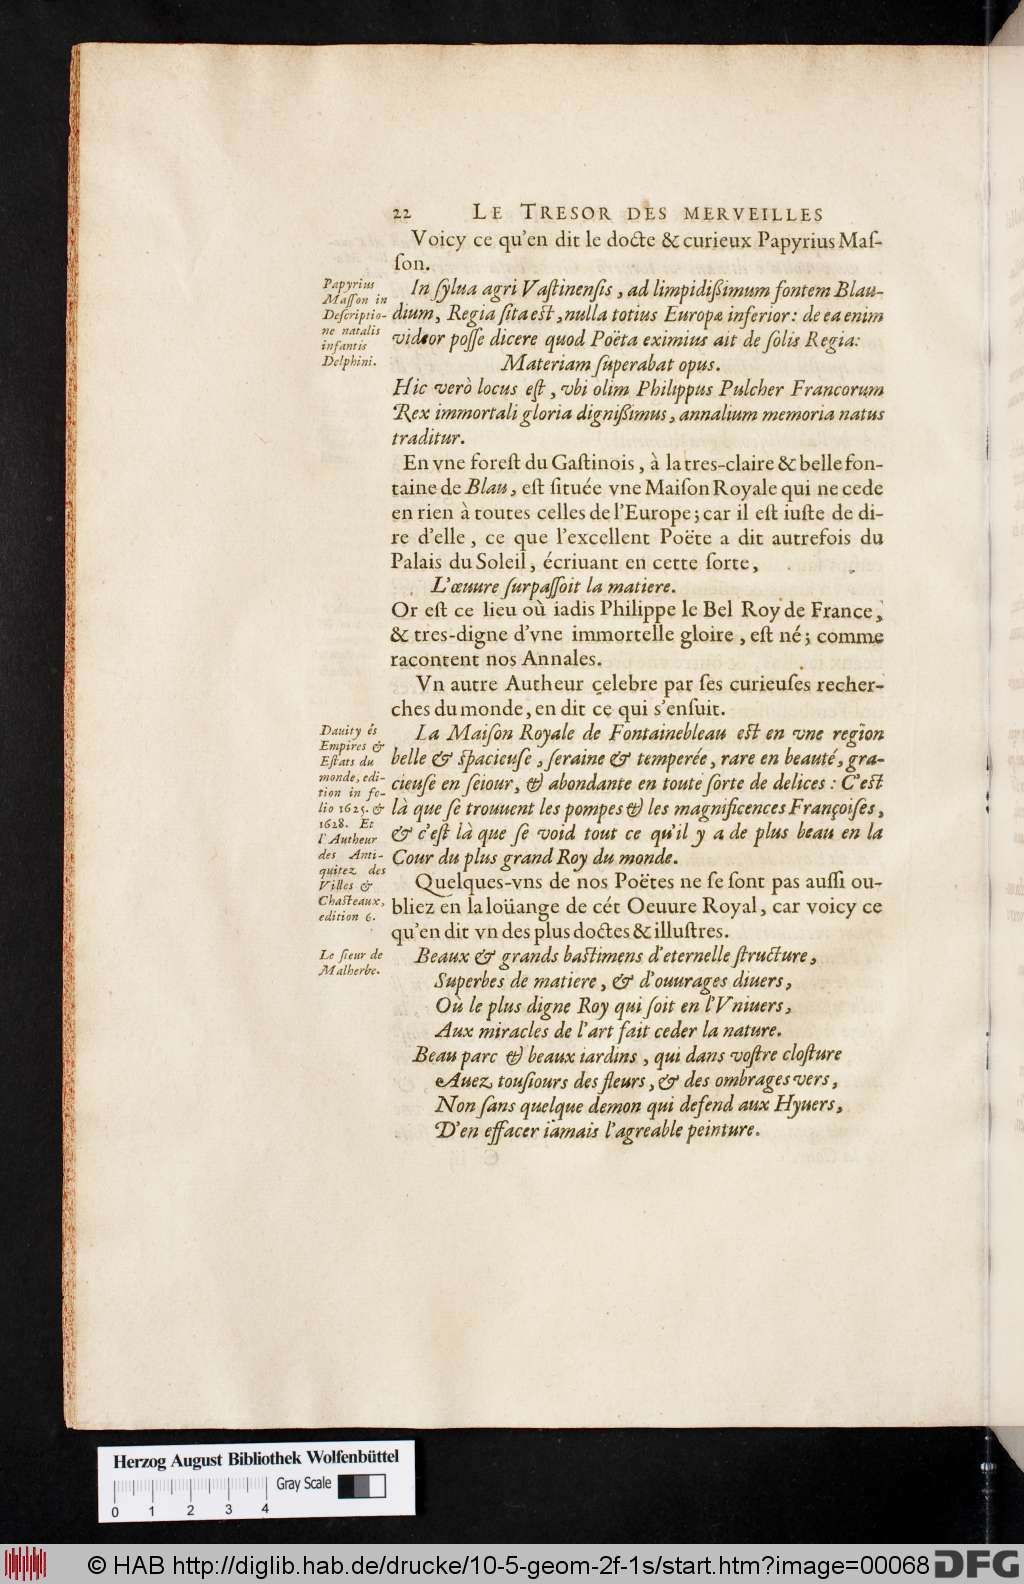 22 LE TRESOR DES MERVEILLES
Voicy ce qu'en dit le docte & curieux Papyrius Maſ-
ſon.
Papyrius
Maſſon in
Deſcriptio-
ne natalis
infantis
Delphini.
In ſylua agri Vaſtinenſis, ad limpidiſſimum fontem Blau-
dium, Regia ſita eſt, nulla totius Europæ inferior: de ea enim
videor poſſe dicere quod Poëta eximius ait de ſolis Regia:
Materiam ſuperabat opus.
Hic verò locus eſt, vbi olim Philippus Pulcher Francorum
Rex immortali gloria digniſſimus, annalium memoria natus
traditur.
En vne foreſt du Gaſtinois, à la tres-claire & belle fon-
taine de Blau, eſt ſituée vne Maiſon Royale qui ne cede
en rien à toutes celles de l'Europe; car il eſt iuſte de di-
re d'elle, ce que l'excellent Poëte a dit autrefois du
Palais du Soleil, écriuant en cette ſorte,
L'œuure ſurpaſſoit la matiere.
Or eſt ce lieu où iadis Philippe le Bel Roy de France,
& tres-digne d'vne immortelle gloire, eſt né; comme
racontent nos Annales.
Vn autre Autheur celebre par ſes curieuſes recher-
ches du monde, en dit ce qui s'enſuit.
Dauity és
Empires &
Eſtats du
monde, edi-
tion in fo-
lio 1625. &
1628. Et
l'Autheur
des Anti-
quitez des
Villes &
Chaſteaux,
edition 6.
La Maiſon Royale de Fontainebleau eſt en vne region
belle & ſpacieuſe, ſeraine & temperée, rare en beauté, gra-
cieuſe en ſeiour, & abondante en toute ſorte de delices: C'eſt
là que ſe trouuent les pompes & les magnificences Françoiſes,
& c'eſt là que ſe void tout ce qu'il y a de plus beau en la
Cour du plus grand Roy du monde.
Quelques-vns de nos Poëtes ne ſe ſont pas auſſi ou-
bliez en la loüange de cét Oeuure Royal, car voicy ce
qu'en dit vn des plus doctes & illuſtres.
Le ſieur de
Malherbe.
Beaux & grands baſtimens d'eternelle ſtructure,
Superbes de matiere, & d'ouurages diuers,
Où le plus digne Roy qui ſoit en l'Vniuers,
Aux miracles de l'art fait ceder la nature.
Beau parc & beaux iardins, qui dans voſtre cloſture
Auez touſiours des fleurs, & des ombrages vers,
Non ſans quelque demon qui defend aux Hyuers,
D'en effacer iamais l'agreable peinture.
Herzog August Bibliothek Wolfenbüttel
Gray Scale
0 1 2 3 4
© HAB http://diglib.hab.de/drucke/10-5-geom-2f-1s/start.htm?image=00068 DFG